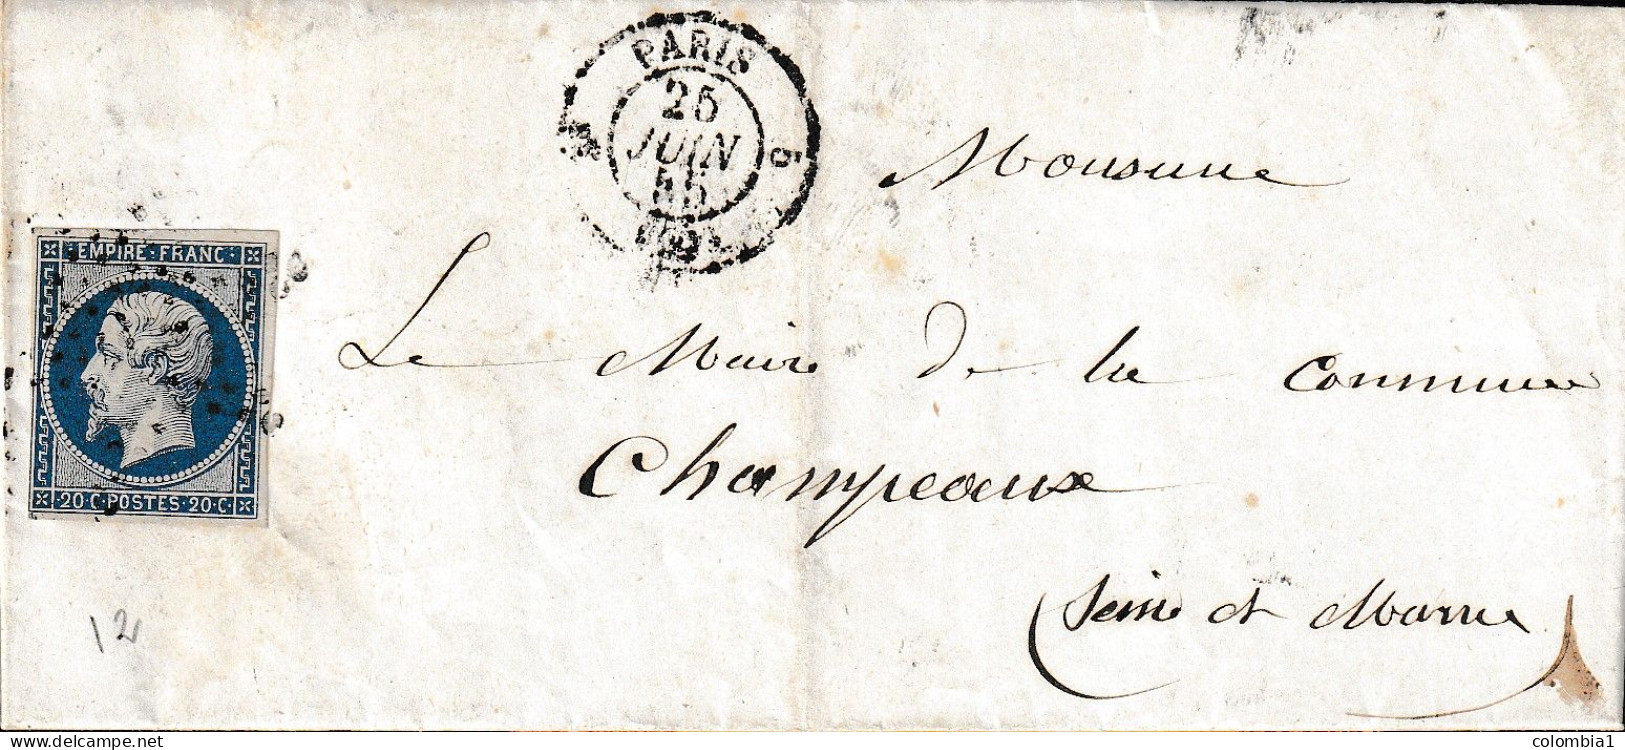 PARIS
25
JUIN
55
5
(60)
Monsieur
EMPIRE · FRANC ·
Le Maire de la Commune
Champeaux
20 · C · POSTES · 20 · C ·
(Seine et Marne)
12
colombia1